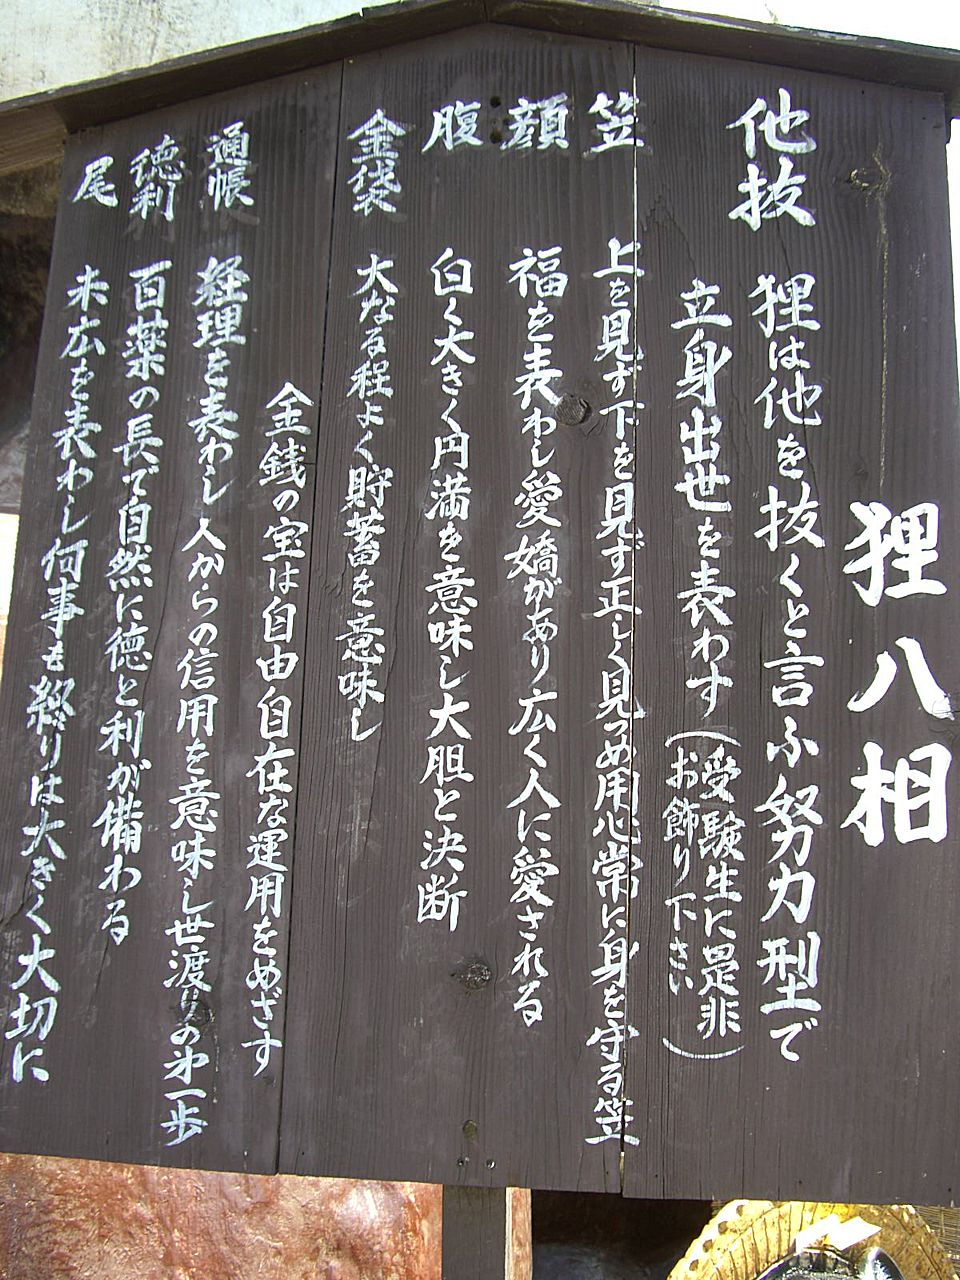 狸八相
他抜 狸は他を抜くと言ふ努力型で
立身出世を表わす
(受験生に是非
お飾り下さい)
笠 上を見ず下を見ず正しく見つめ用心常に身を守る笠
顔 福を表わし愛嬌があり広く人に愛される
腹 白く大きく円満を意味し大胆と決断
金袋 大なる程よく貯蓄を意味し
金銭の宝は自由自在な運用をめざす
通帳 経理を表わし人からの信用を意味し世渡りの第一歩
徳利 百薬の長で自然に徳と利が備わる
尾 末広を表わし何事も終りは大きく大切に